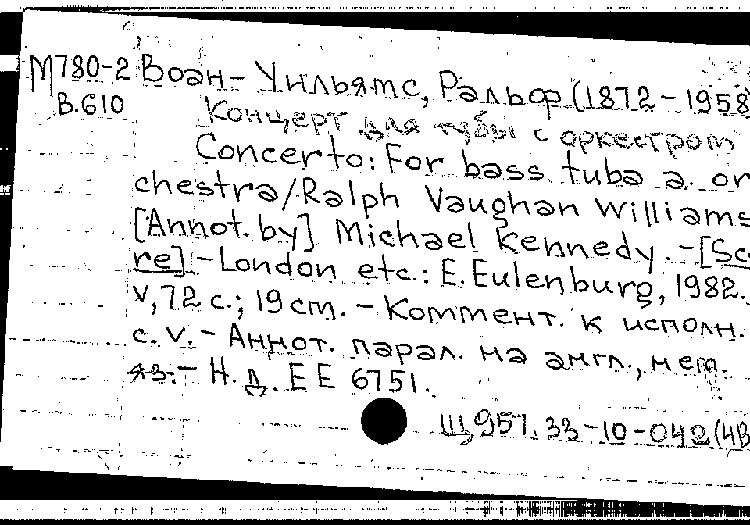 М780-2 Воан-Уильямс, Ральф (1872-1958
В.610 Концерт для тубы с оркестром
Concerto: For bass tuba a. or
chestra/Ralph Vaughan Williams
[Annot. by] Michael Kennedy. -[Sc
re]-London etc.: E. Eulenburg, 1982.
V, 72 c.; 19 cm. - Коммент. к исполн.
c. V. - Аннот. парал. на англ., нем.
яз. - Н. д. ЕЕ 6751.
Щ957.33-10-042(4В